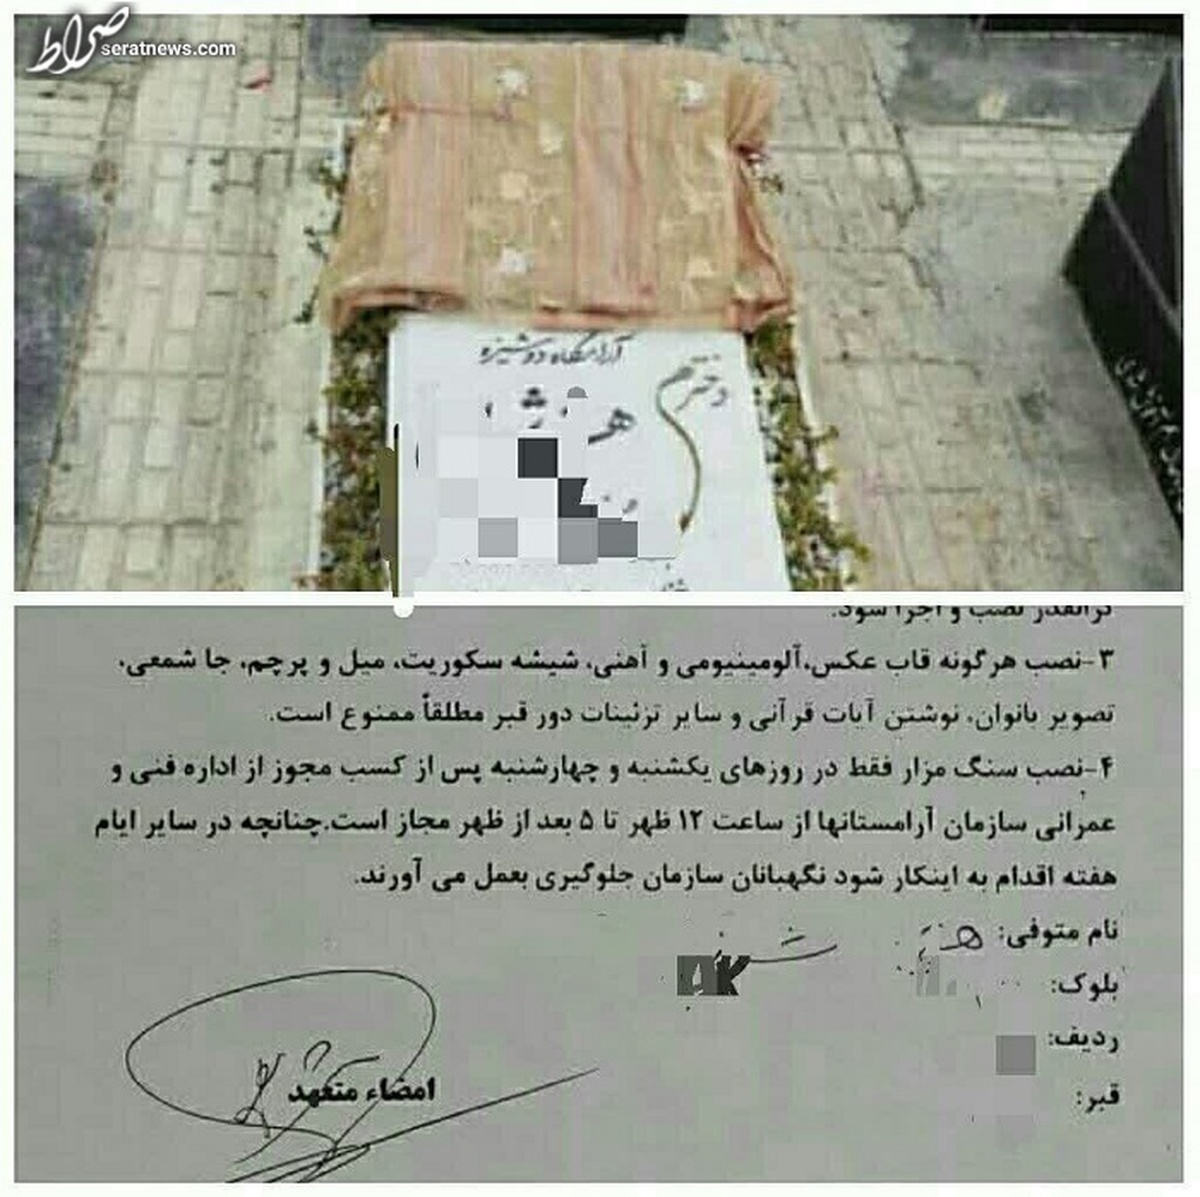 صراط
seratnews.com
آرامگاه دوشیزه
دخترم
گرانقدر نصب و اجرا شود.
۳-نصب هرگونه قاب عکس،آلومینیومی و آهنی، شیشه سکوریت، میل و پرچم، جا شمعی،
تصویر بانوان، نوشتن آیات قرآنی و سایر تزئینات دور قبر مطلقاً ممنوع است.
۴-نصب سنگ مزار فقط در روزهای یکشنبه و چهارشنبه پس از کسب مجوز از اداره فنی و
عمرانی سازمان آرامستانها از ساعت ۱۲ ظهر تا ۵ بعد از ظهر مجاز است.چنانچه در سایر ایام
هفته اقدام به اینکار شود نگهبانان سازمان جلوگیری بعمل می آورند.
نام متوفی:
بلوک:
ردیف:
قبر:
امضاء متعهد